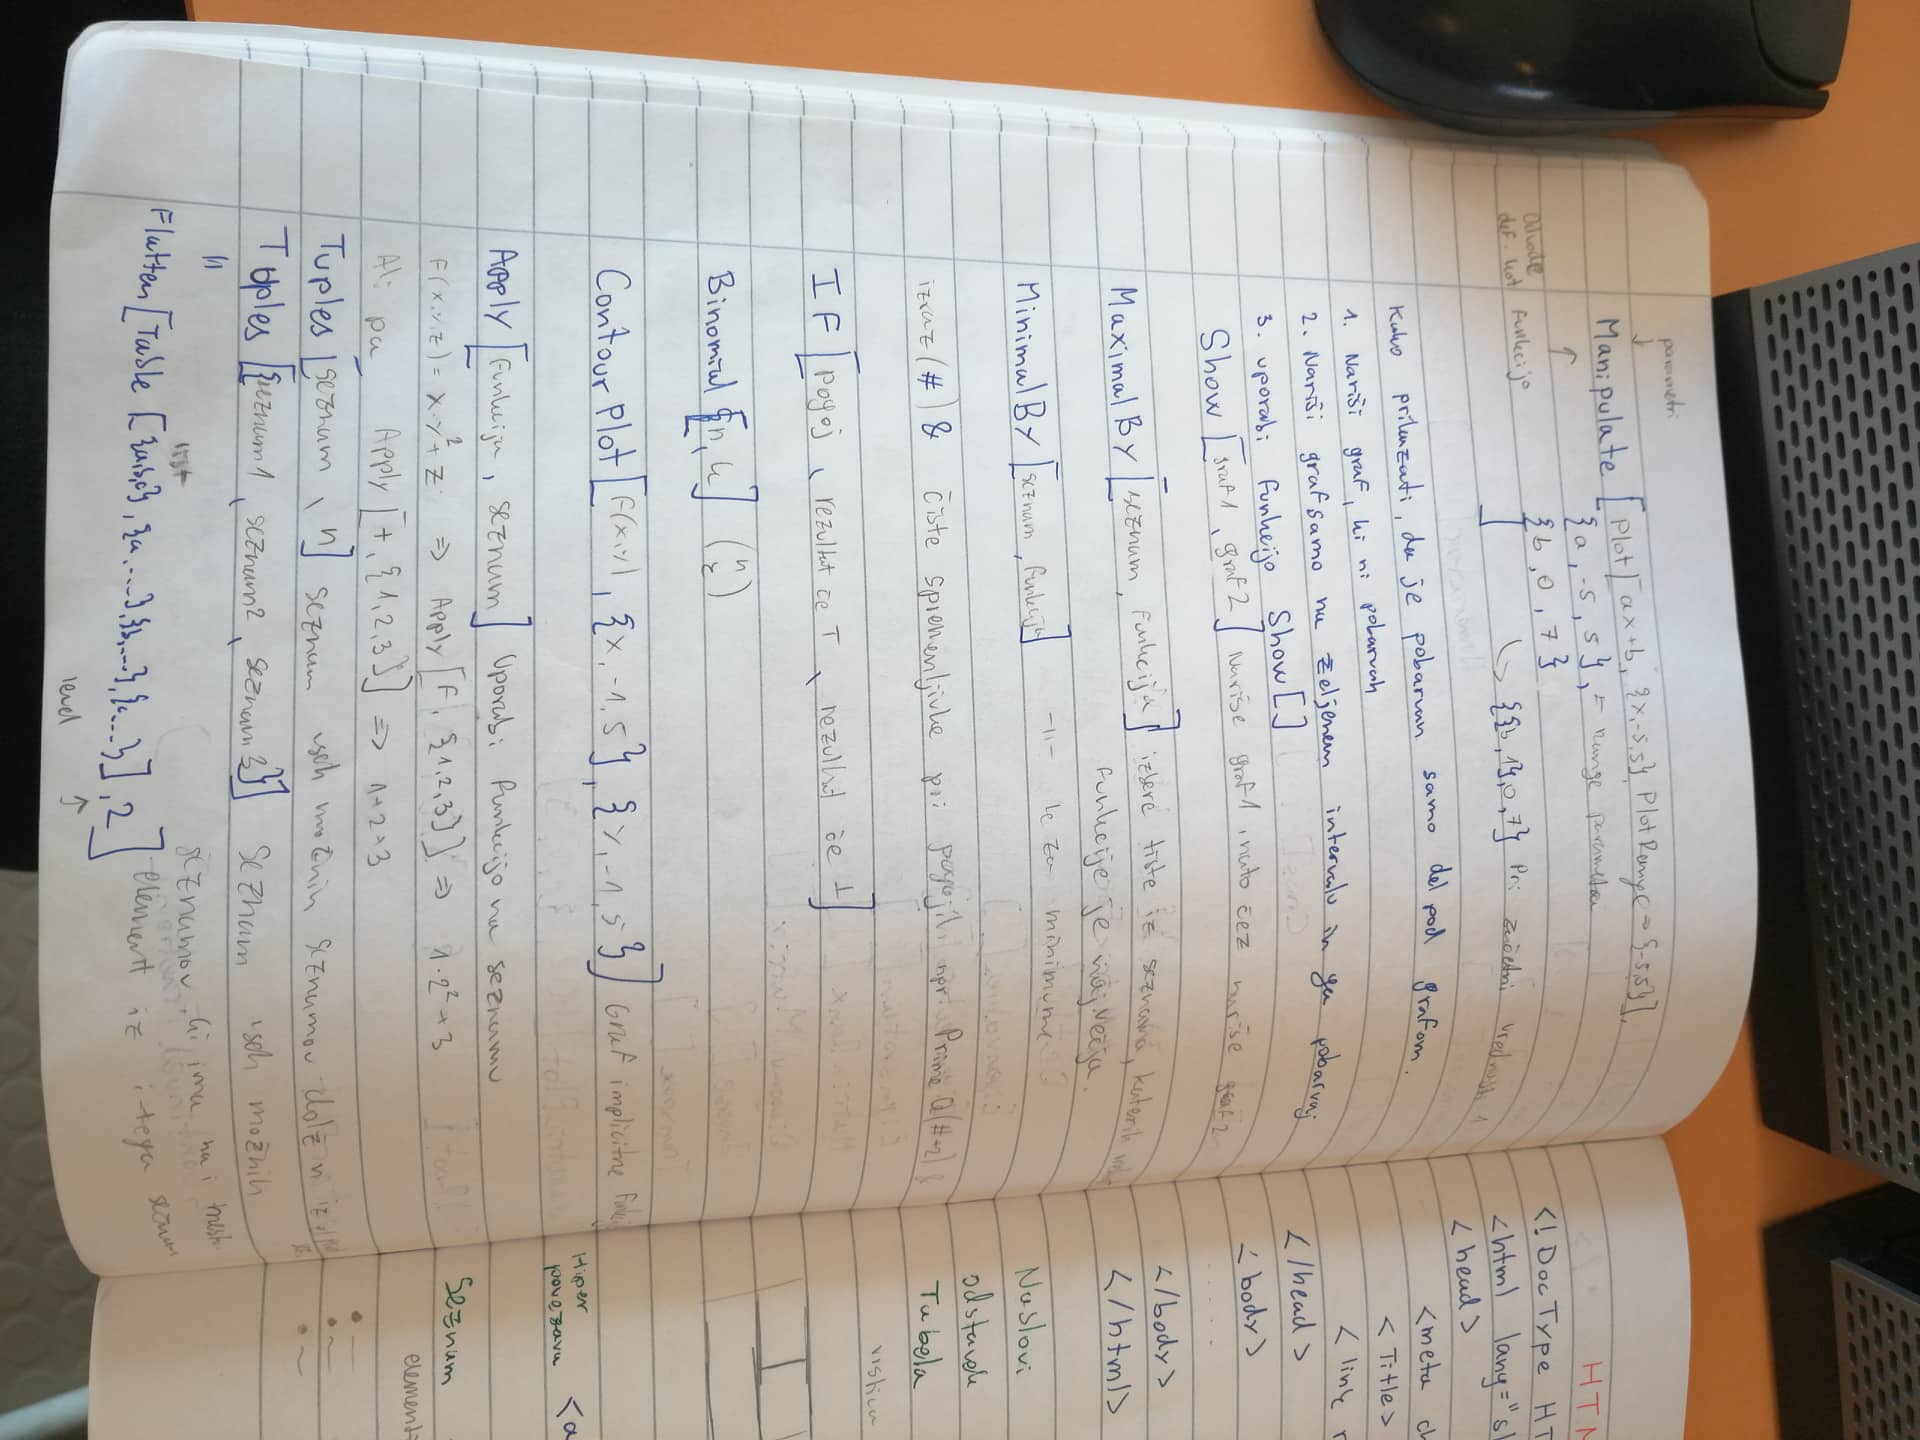 parametri
Manipulate [Plot[ax+b, {x,-5,5}, PlotRange → {-5,5}],
{a, -5, 5}, = range parametra
{b, 0, 7}
] {{b, 1}, 0, 7} Pri začetni vrednosti 1
def. kot funkcijo
Kako prikazati, da je pobarvan samo del pod grafom.
1. Nariši graf, ki ni pobarvan
2. Nariši graf samo na željenem intervalu in ga pobarvaj
3. uporabi funkcijo Show[]
Show [graf1, graf2] nariše graf1 nato čez nariše graf2
MaximalBy [seznam, funkcija] izbere tiste iz seznama, katerih
funkcije je največja.
MinimalBy [seznam, funkcija] -||- le za minimume
izraz(#)& čiste spremenljivke pri pogoji npr. PrimeQ(#+2)&
IF [pogoj, rezultat če T, rezultat če ⊥]
Binomial [n, k] (n k)
ContourPlot [f(x,y), {x,-1,5}, {y,-1,5}] Graf implicitne funkcije
Apply [funkcija, seznam] Uporabi funkcijo na seznamu
F(x,y,z) = x·y²+z ⇒ Apply[F, {1,2,3}] ⇒ 1·2²+3
Ali pa Apply [+, {1,2,3}] ⇒ 1+2+3
Tuples [seznam, n] seznam vseh možnih seznamov dolž n iz
Tuples [{seznam1, seznam2, seznam3}] Seznam vseh možnih
seznamov, ki ima na i mestu
list
Flatten [Table [{a,b,c}, {a,...}, {b,...}, {c,...}], 2] element iz i-tega seznam
level
HTM
<!DocType HT
<html lang="sl
<head>
<meta ch
<Title>
<link r
</head>
<body>
.....
</body>
</html>
Naslovi
odstavek
Tabela
vrstica
Hiper
povezava <a
Seznam
element